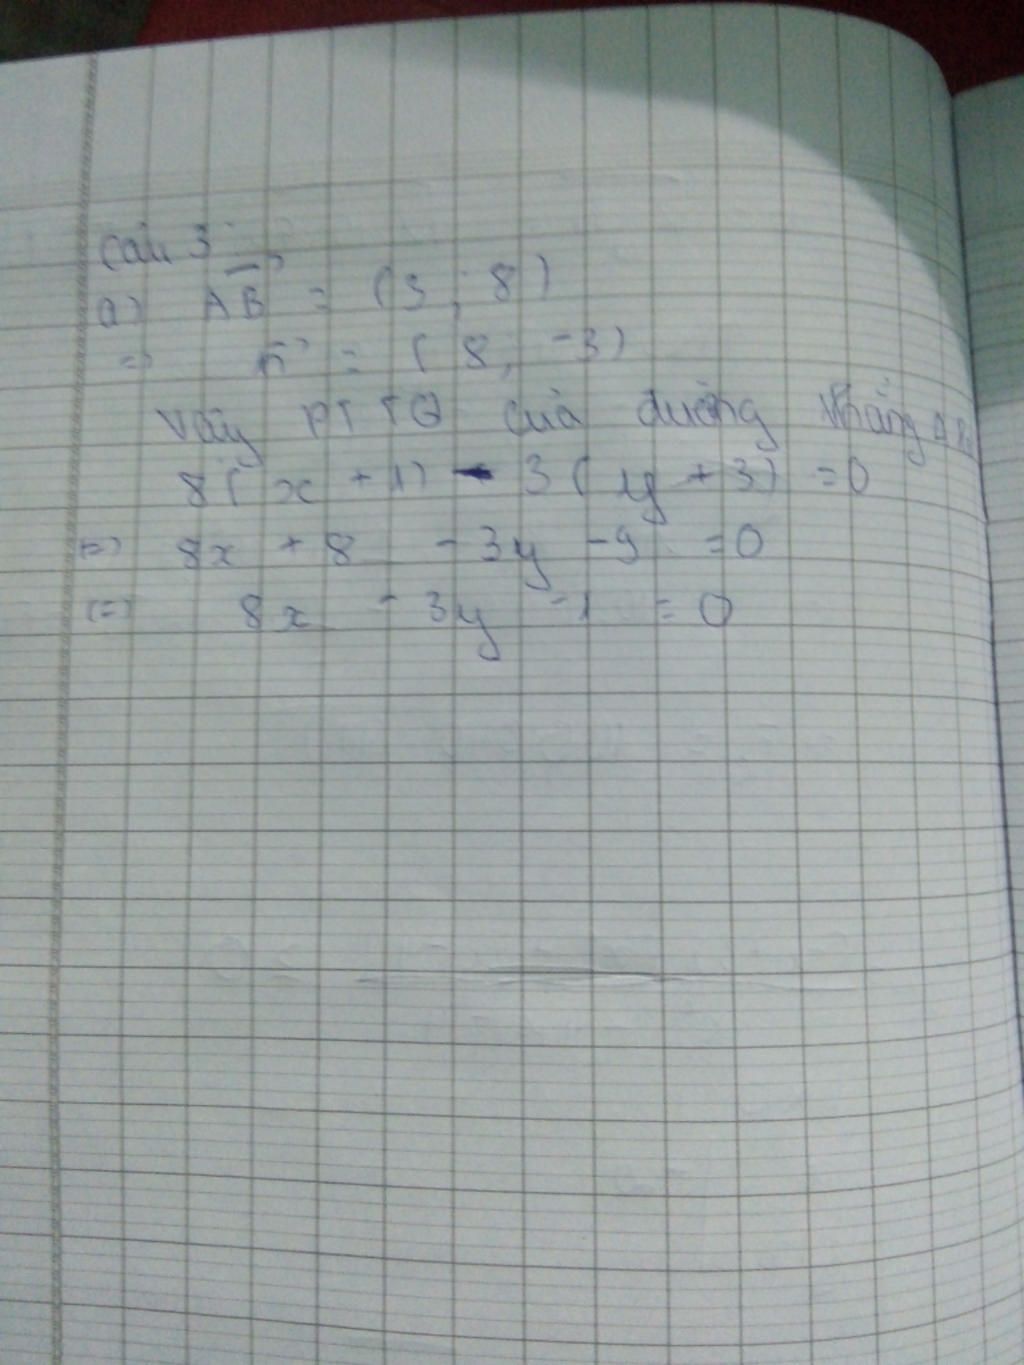 Câu 3
a) AB = (3 ; 8)
=> n = (8; -3)
Vậy PTTQ của đường thẳng Δ là
8(x + 1) - 3(y + 3) = 0
<=> 8x + 8 - 3y - 9 = 0
<=> 8x - 3y - 1 = 0